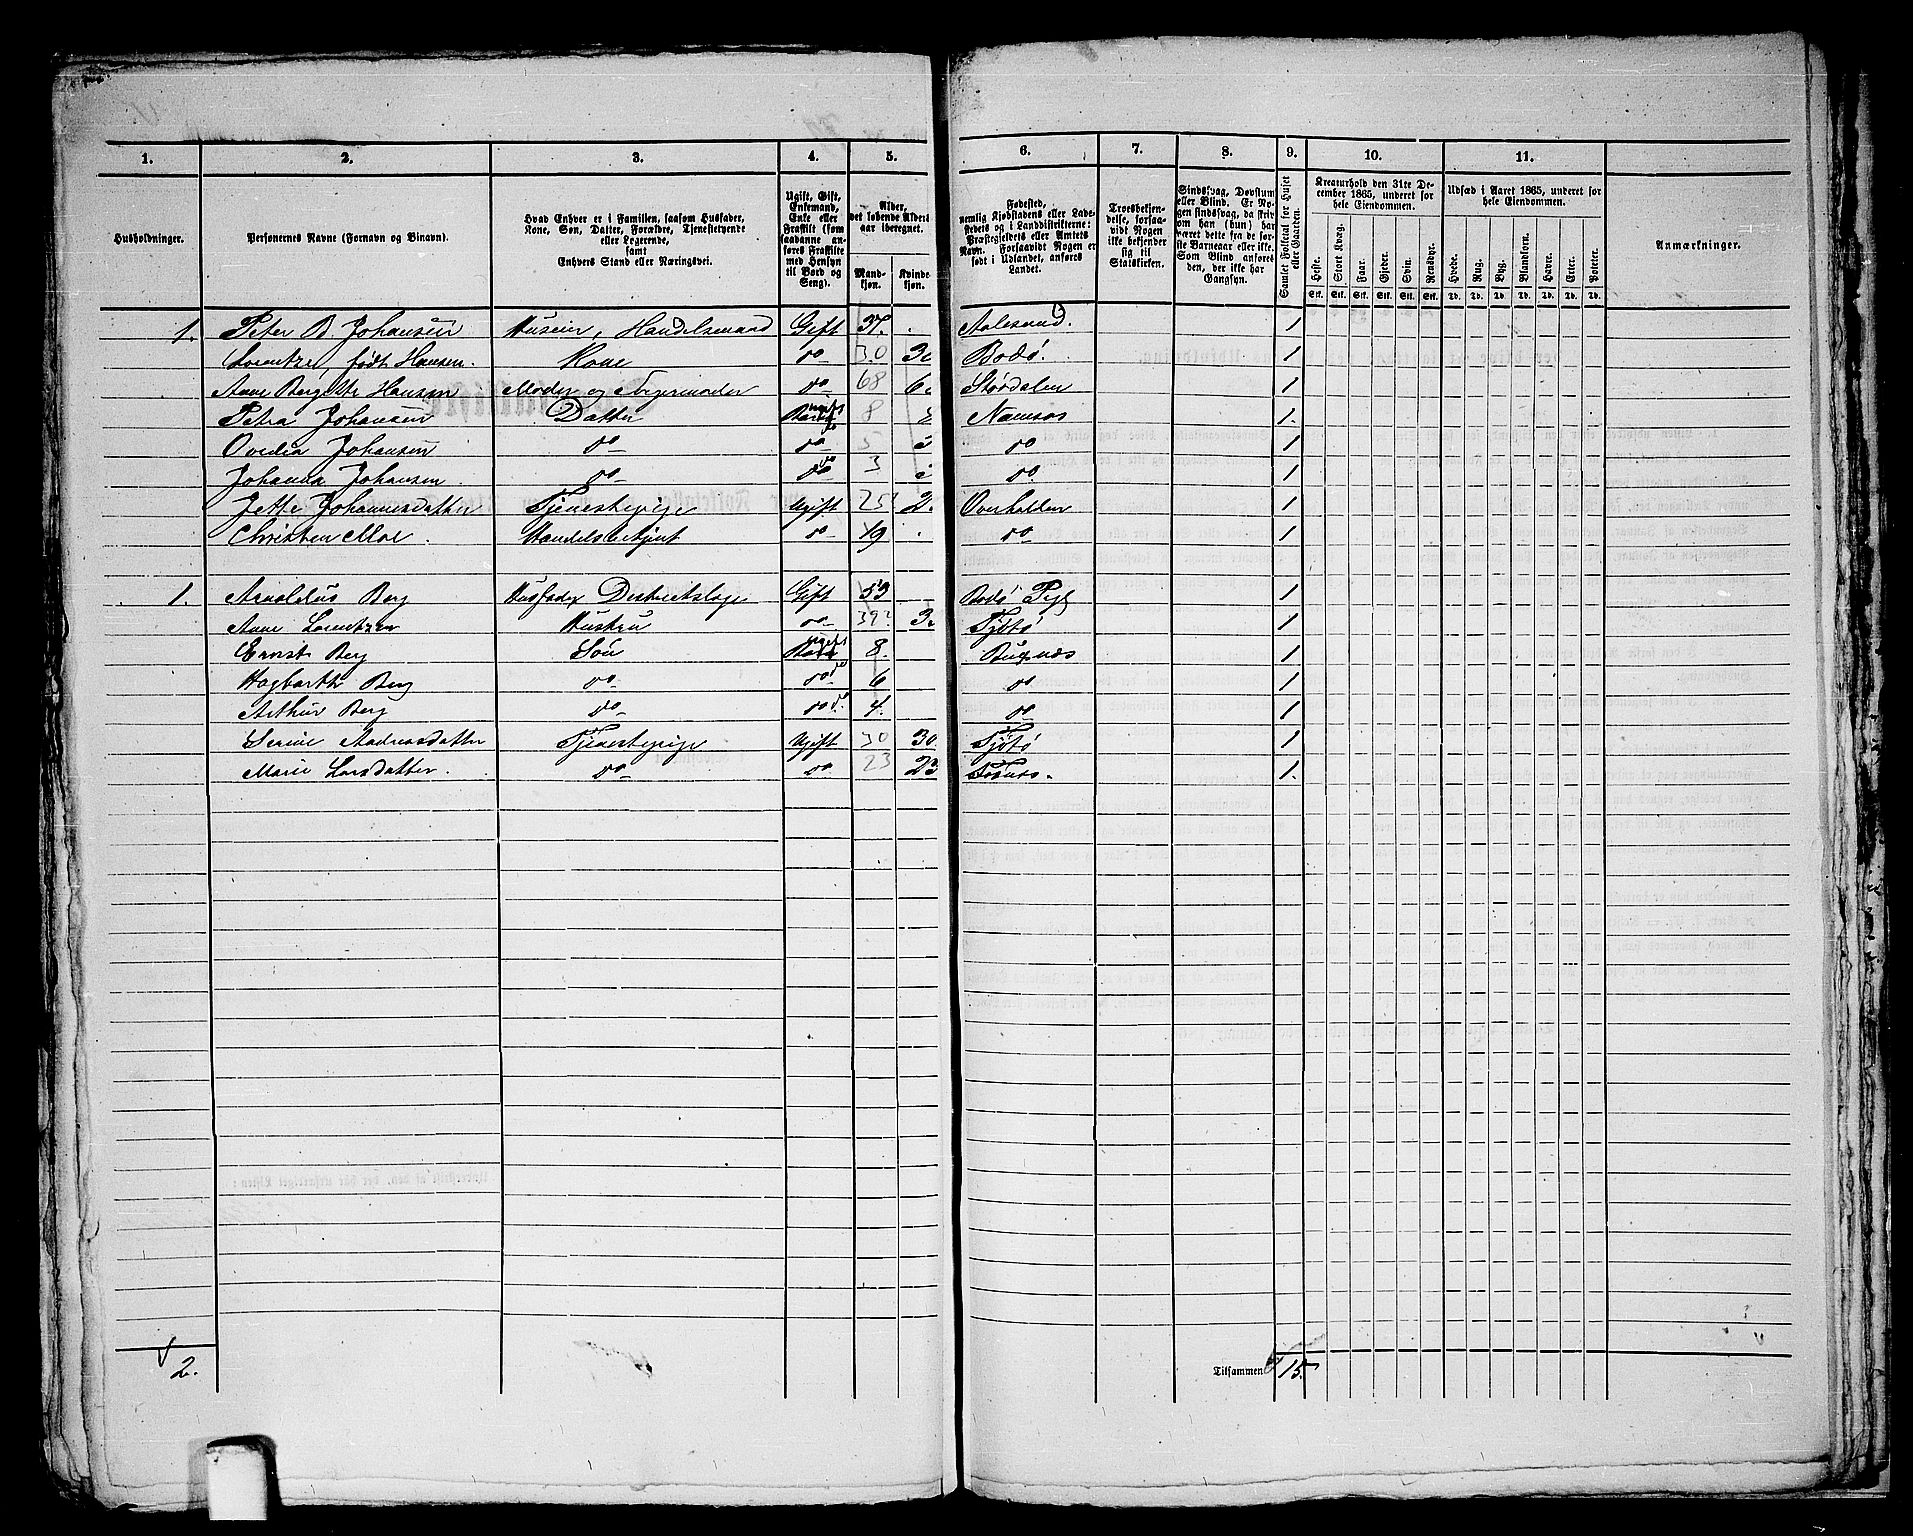 1. 2. 3. 4. 5. 6. 7. 8. 9. 10. 11.
Husholdninger.
Personernes Navne (Fornavn og Binavn).
Hvad Enhver er i Familien, saasom Husfader,
Kone, Søn, Datter, Forældre, Tjenestetyende
eller Logerende,
samt
Enhvers Stand eller Næringsvei.
Ugift, Gift,
Enkemand,
Enke eller
Fraskilt (som
saadanne an-
føres Fraskilte
med Hensyn
til Bord og
Seng).
Alder,
det løbende Alders-
aar iberegnet.
Mand-
kjøn.
Kvinde-
kjøn.
Fødested,
nemlig Kjøbstadens eller Lade-
stedets og i Landdistrikterne:
Præstegjeldets eller Amtets
Navn. Forsaavidt Nogen er
født i Udlandet, anføres
Landet.
Troesbekjen-
delse, forsaa-
vidt Nogen
ikke bekjender
sig til
Statskirken.
Sindssvag, Døvstum
eller Blind. Er No-
gen sindssvag, da skriv
om han (hun) har
været dette fra de før-
ste Barneaar eller ikke.
Som Blind anføres
den, der ikke har
Gangsyn.
Samlet Folketal for Huset
eller Gaarden.
Kreaturhold den 31te De-
cember 1865, underet for
hele Eiendommen.
Heste. Stort Kvæg. Faar. Gjeder. Svin. Rensdyr.
Stk. Stk. Stk. Stk. Stk. Stk.
Udsæd i Aaret 1865, underet for
hele Eiendommen.
Hvede. Rug. Byg. Blandkorn. Havre. Erter. Poteter.
Td. Td. Td. Td. Td. Td. Td.
Anmærkninger.
1. Peter B. Johansen Huseier, Handelsmand Gift 37. Aalesund. 1
Lorentze, født Hansen. Kone do 30 Bodø. 1
Anne Bergitte Hansen Moder og Svigermoder do 68 Størdalen 1
Petra Johansen Datter ugift 8 Namsos 1.
Ovedia Johansen do do 5 do 1
Johanna Johansen. do do 3 do. 1
Jette Johannesdatter Tjenestepige Ugift 25 Overhalden 1
Christen Moe. Handelsbetjent do 19 do 1
1. Arnoldus Berg Husfader Districtslæge Gift 53 Bodø Pgl 1
Anne Lorentzen Hustru do 39? Tjøtø 1
Ernst Berg Søn ugift 8. 1
Hagbarth Berg do do 6 do 1
Arthur Berg do do. 4. do 1
Serine Andreasdatter Tjenestepige Ugift 30 30. Tjøtø 1
Marie Larsdatter. do do 23 23 1.
2.
Tilsammen 15.